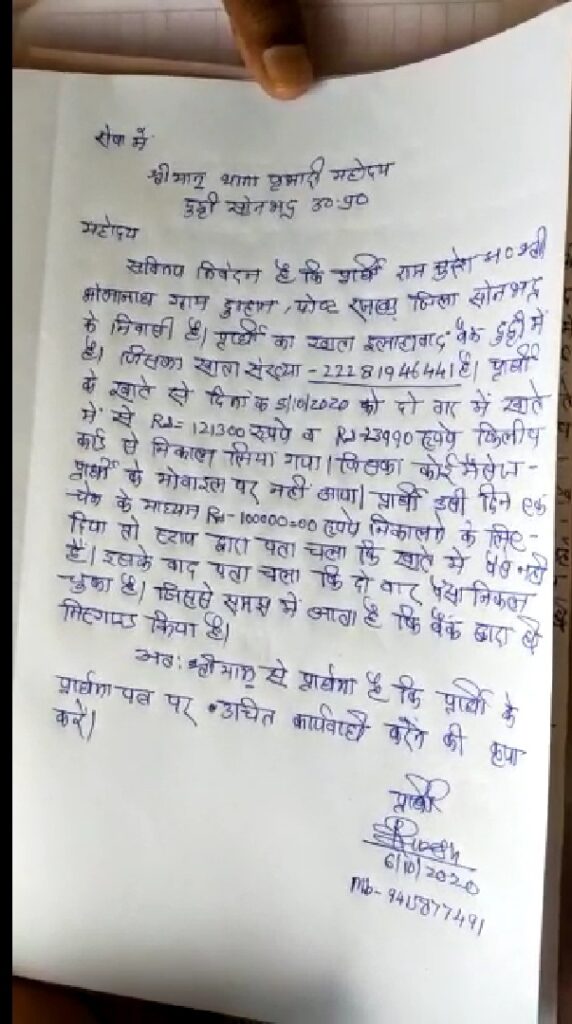 सेवा में
श्रीमान् थाना प्रभारी महोदय
दुद्धी सोनभद्र उ०प्र०
महोदय
सविनय निवेदन है कि प्रार्थी राम सुरेश
भोलानाथ ग्राम डुमहान, पोस्ट रजखड़ जिला सोनभद्र
के निवासी है। प्रार्थी का खाता इलाहाबाद बैंक दुद्धी में
है। जिसका खाता संख्या - 22281946441 है। प्रार्थी
के खाते से दिनांक 5/10/2020 को दो बार में खाते
में से Rs= 121300 रुपये व Rs-23990 रुपये
कार्ड से निकाल लिया गया। जिसका कोई मैसेज -
प्रार्थी के मोबाइल पर नहीं आया। प्रार्थी इसी दिन एक
चेक के माध्यम Rs-100000=00 रुपये निकालने के लिए -
दिया तो द्वारा पता चला कि खाते में पैसा नही
है। इसके बाद पता चला कि दो बार पैसा निकल
चुका है। जिससे समझ में आता है कि बैंक द्वारा ही
किया है।
अतः श्रीमान् से प्रार्थना है कि प्रार्थी के
प्रार्थना पत्र पर उचित कार्यवाही करने की कृपा
करें।
प्रार्थी
6/10/2020
Mb- 9415877491